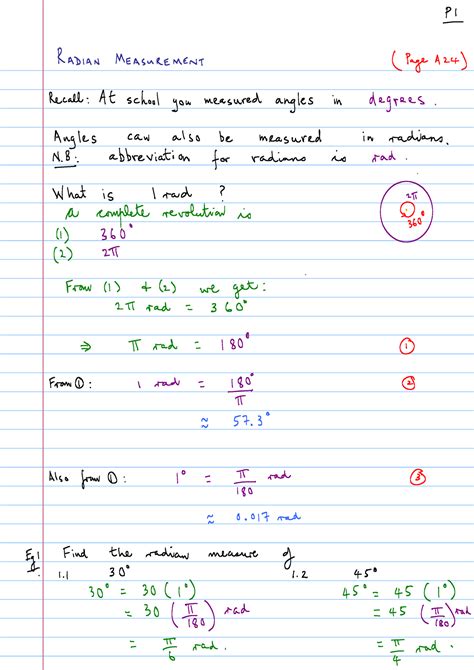 P1
RADIAN MEASUREMENT (Page A24)
Recall: At school you measured angles in degrees.
Angles can also be measured in radians.
N.B: abbreviation for radians is rad.
What is 1 rad ?
a complete revolution is
(1) 360°
(2) 2π
2π
360°
From (1) & (2) we get:
2π rad = 360°
⇒ π rad = 180° ①
From ①: 1 rad = 180°/π ②
≈ 57.3°
Also from ①: 1° = π/180 rad ③
≈ 0.017 rad
Eg1 Find the radian measure of
1.1 30° 1.2 45°
30° = 30 (1°) 45° = 45 (1°)
= 30 (π/180) rad = 45 (π/180) rad
= π/6 rad. = π/4 rad.